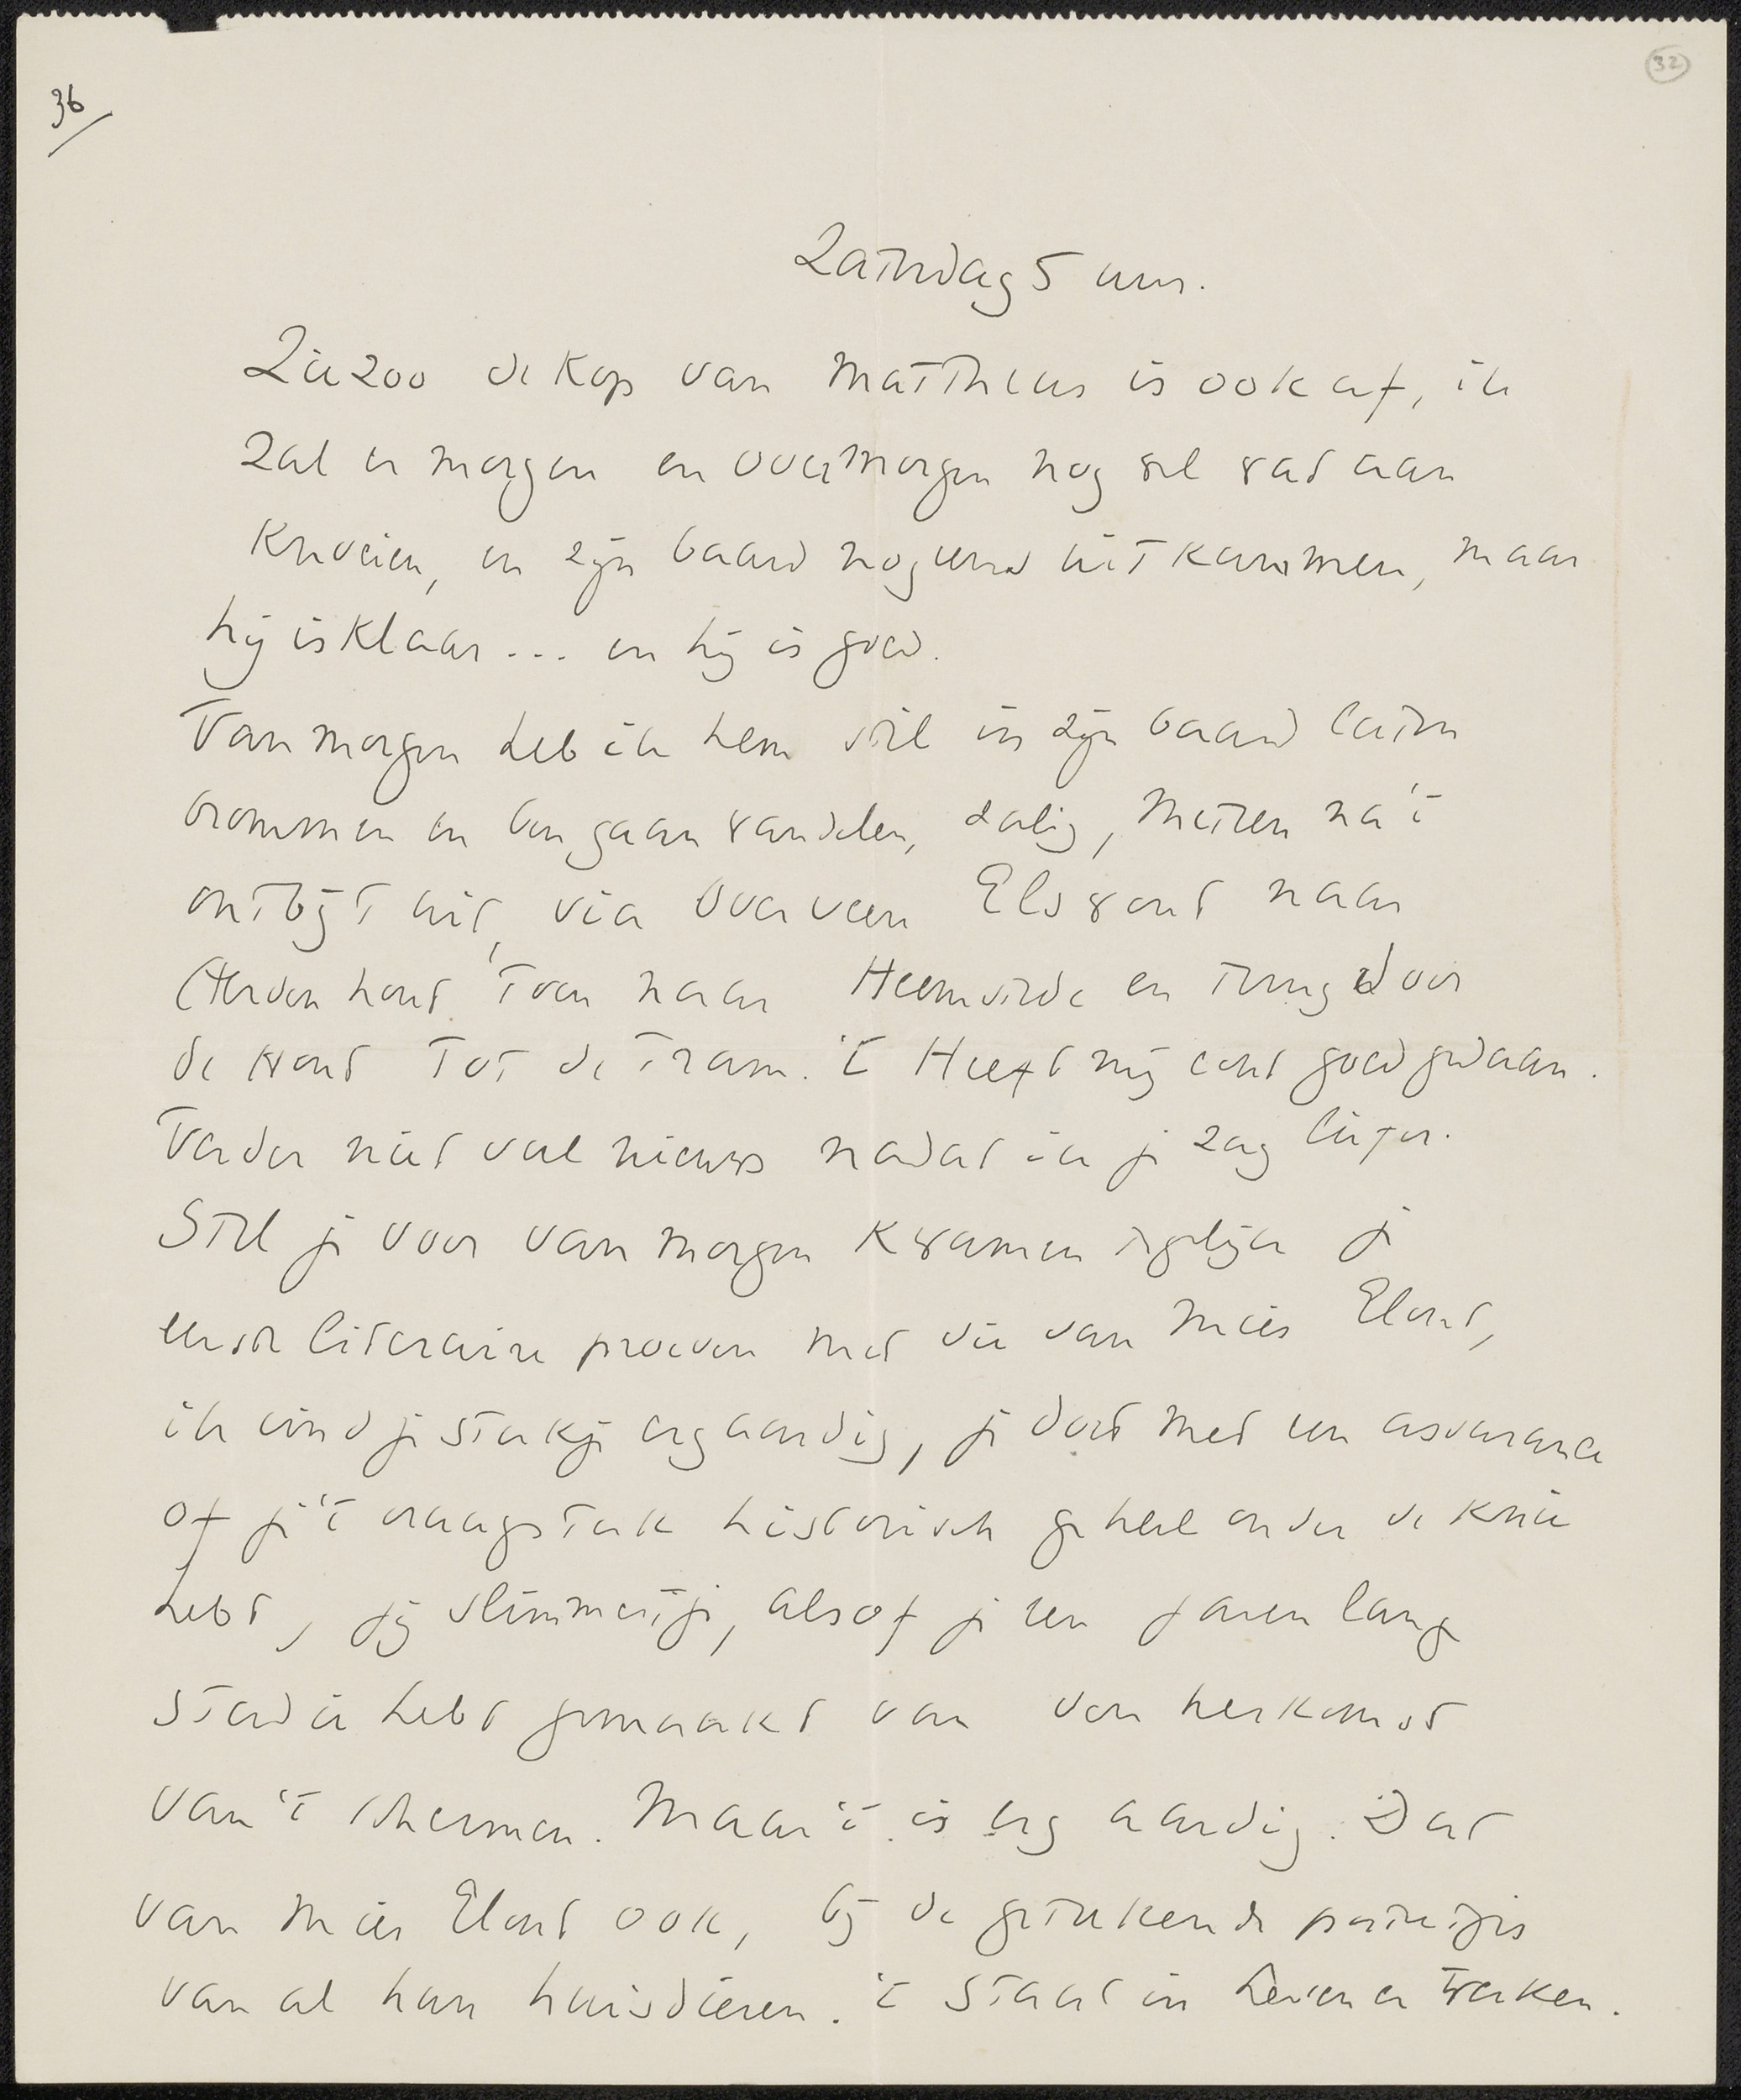 36
32
Zaterdag 5 uur.
Ziezoo de kop van Mattheus is ook af, ik
zal er morgen en overmorgen nog wel wat aan
knoeien, en zijn baard nog eens uitkammen, maar
hij is klaar... en hij is goed.
Van morgen heb ik hem stil in zijn baard laten
brommen en ben gaan wandelen, zalig, meteen na 't
ontbijt uit, via Overveen Elswout naar
Aerdenhout, toen naar Heemstede en terug door
de Hout tot de tram. 't Heeft mij echt goed gedaan.
Verder niet veel nieuws nadat ik je zag liefer.
Stel je voor van morgen kwamen tegelijk je
eerste literaire proeven met die van Mies Elout,
ik vind je stukje erg aardig, je doet met een assurance
of je 't vraagstuk historisch geheel onder de knie
hebt, jij slimmertje, alsof je een jaren lange
studie hebt gemaakt van den herkomst
van 't schermen. Maar 't is erg aardig. Dat
van Mies Elout ook, bij de geteekende portretjes
van al hun huisdieren. 't Staat in Leven en Werken.